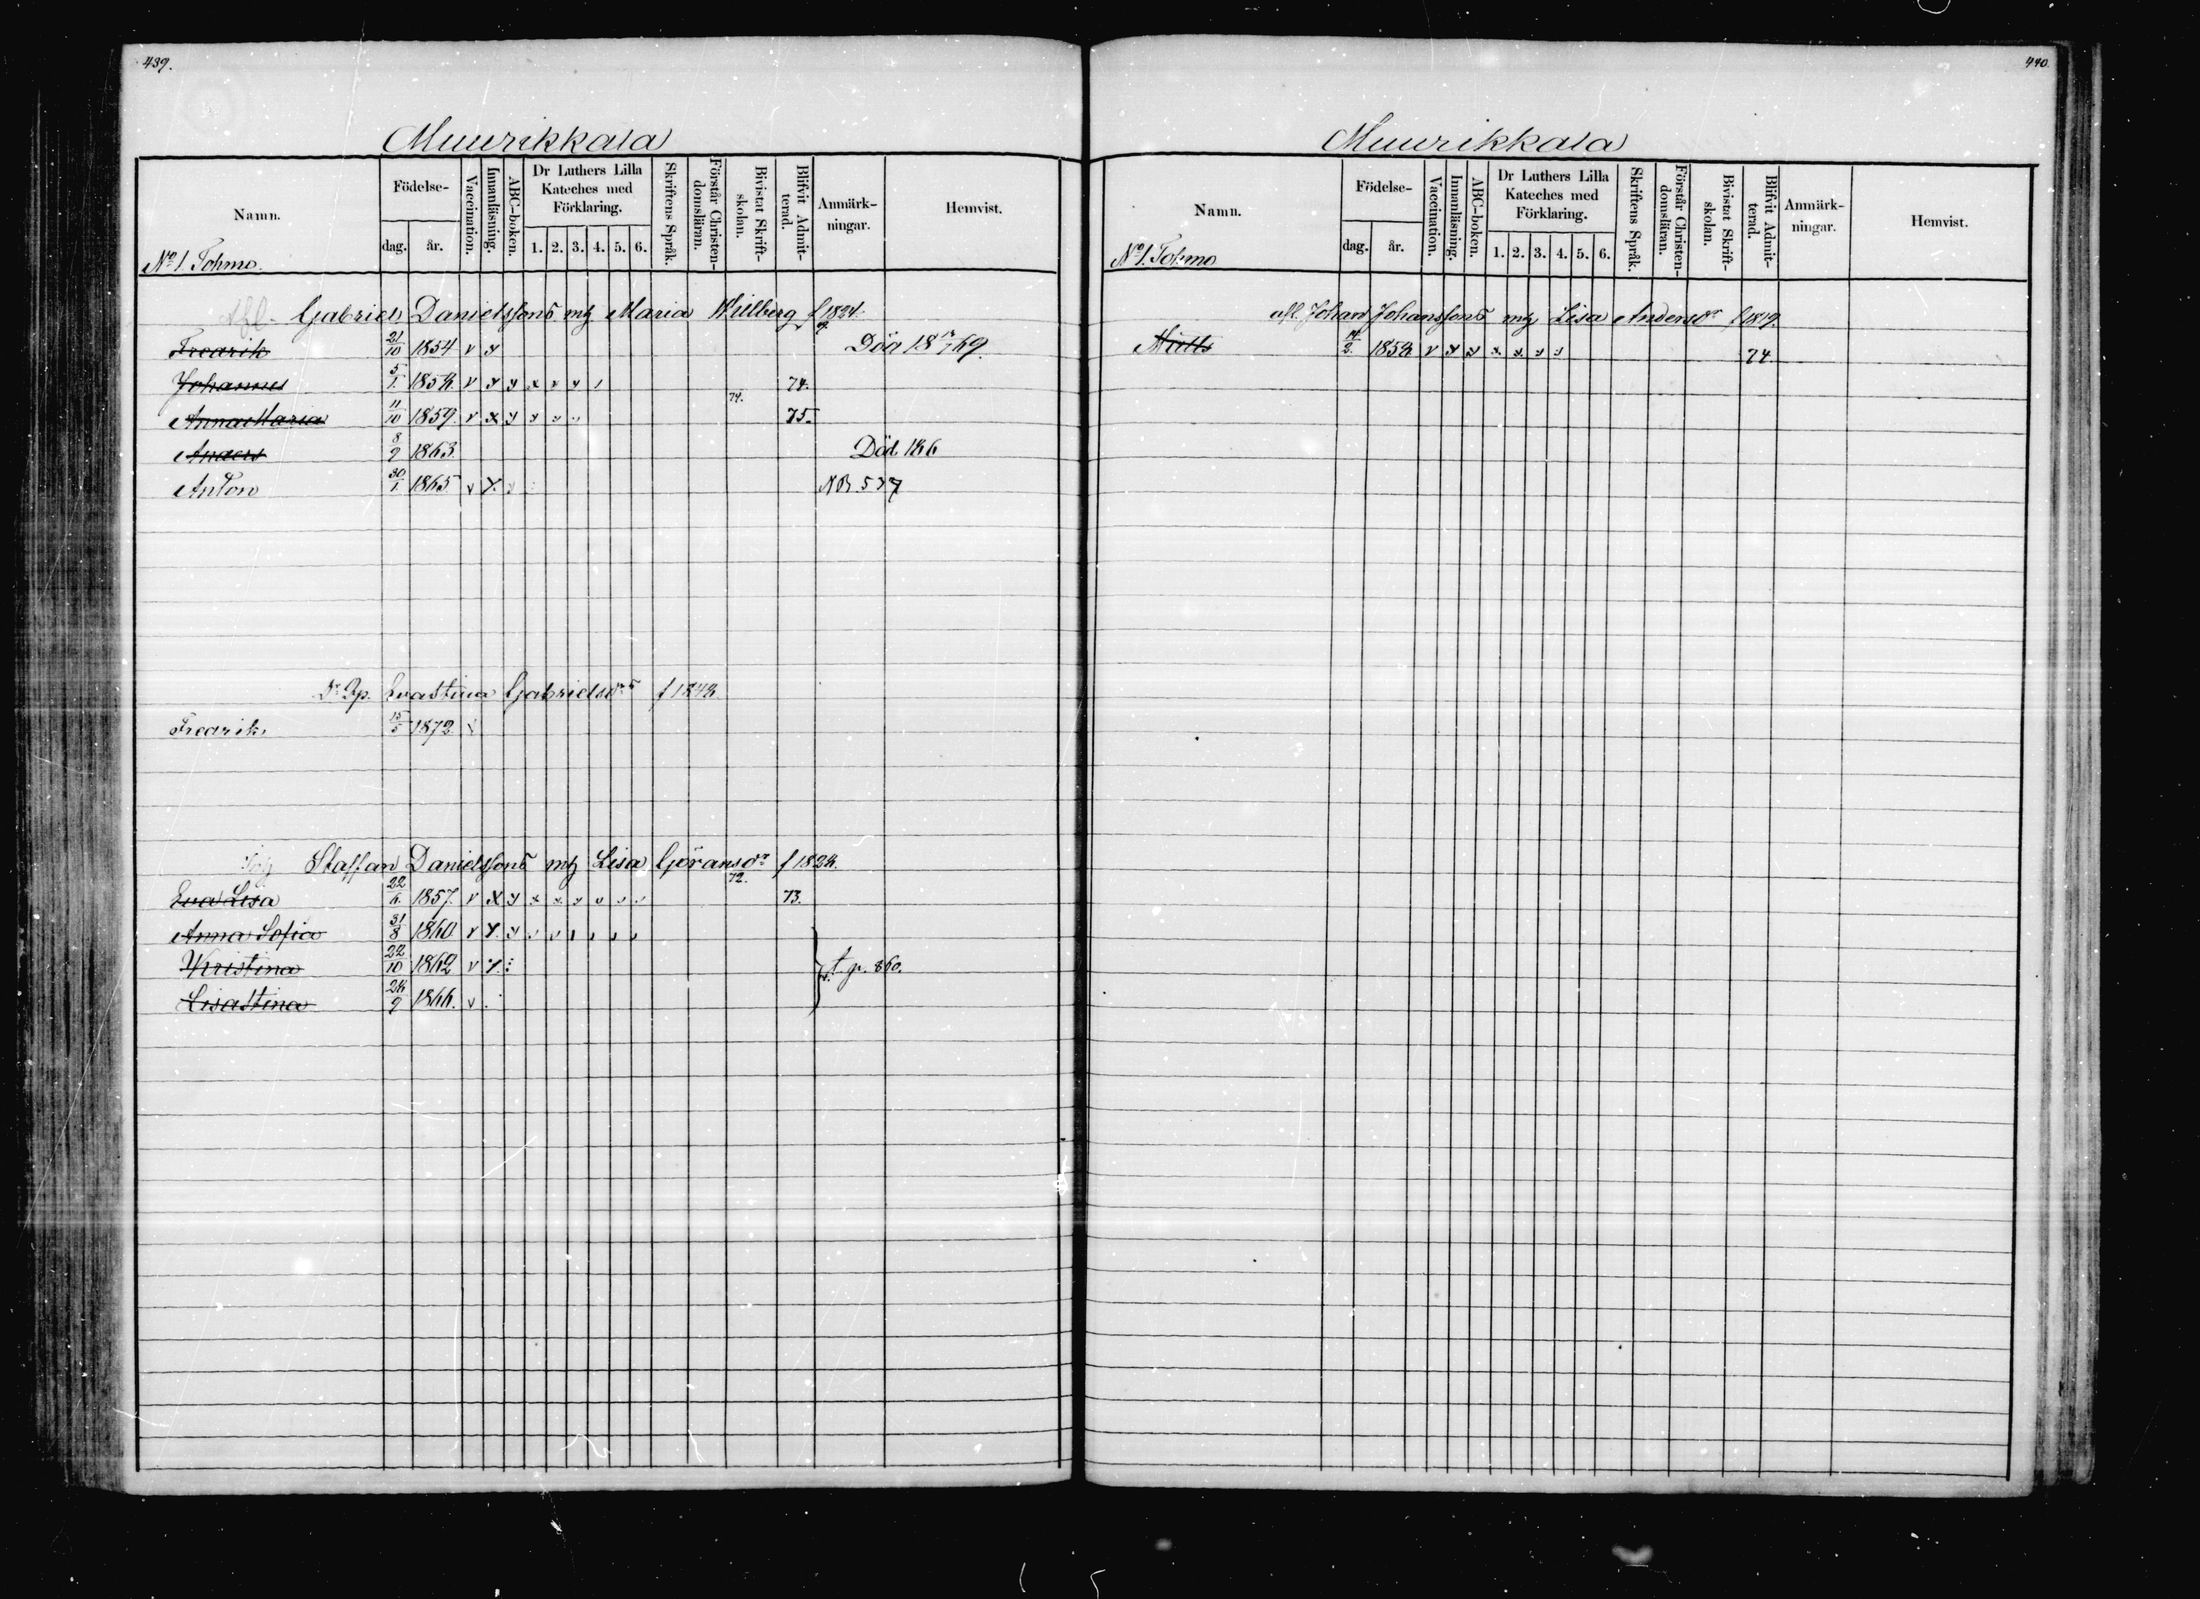 439.
Muurikkala
Namn.
Födelse-
dag.
år.
Vaccination.
Innanläsning.
ABC-boken.
Dr Luthers Lilla
Kateches med
Förklaring.
1. 2. 3. 4. 5. 6.
Skriftens Språk.
Förstår Christen-
domsläran.
Bivistat Skrift-
skolan.
Blifvit Admit-
terad.
Anmärk-
ningar.
Hemvist.
No 1. Tohmo.
Gabriel Danielssons mh Maria Willberg f 1824.
Fredrik 21/10 1854 v Död 18 69.
Johannes 5/1 1858 v 74.
Anna Maria 11/10 1859. v 74. 75.
Anders 8/9 1863 Död 186
Anton 30/1 1865 v NB. 537
Evastina Gabrielsdrs f 1848
Fredrik 15/5 1872
Staffan Danielssons mh Lisa Göransdr f 1828.
Eva Lisa 22/6 1857. v 72. 73.
Anna Sofia 31/8 1860 v
Kristina 22/10 1862 v t. p. 860.
Lisastina 28/9 1866. v
440
Muurikkala
Namn.
Födelse-
dag.
år.
Vaccination.
Innanläsning.
ABC-boken.
Dr Luthers Lilla
Kateches med
Förklaring.
1. 2. 3. 4. 5. 6.
Skriftens Språk.
Förstår Christen-
domsläran.
Bivistat Skrift-
skolan.
Blifvit Admit-
terad.
Anmärk-
ningar.
Hemvist.
No 1. Tohmo
Johan Johanssons mh Lisa Andersdr f 1819.
Matts 14/2 1858 v 74.